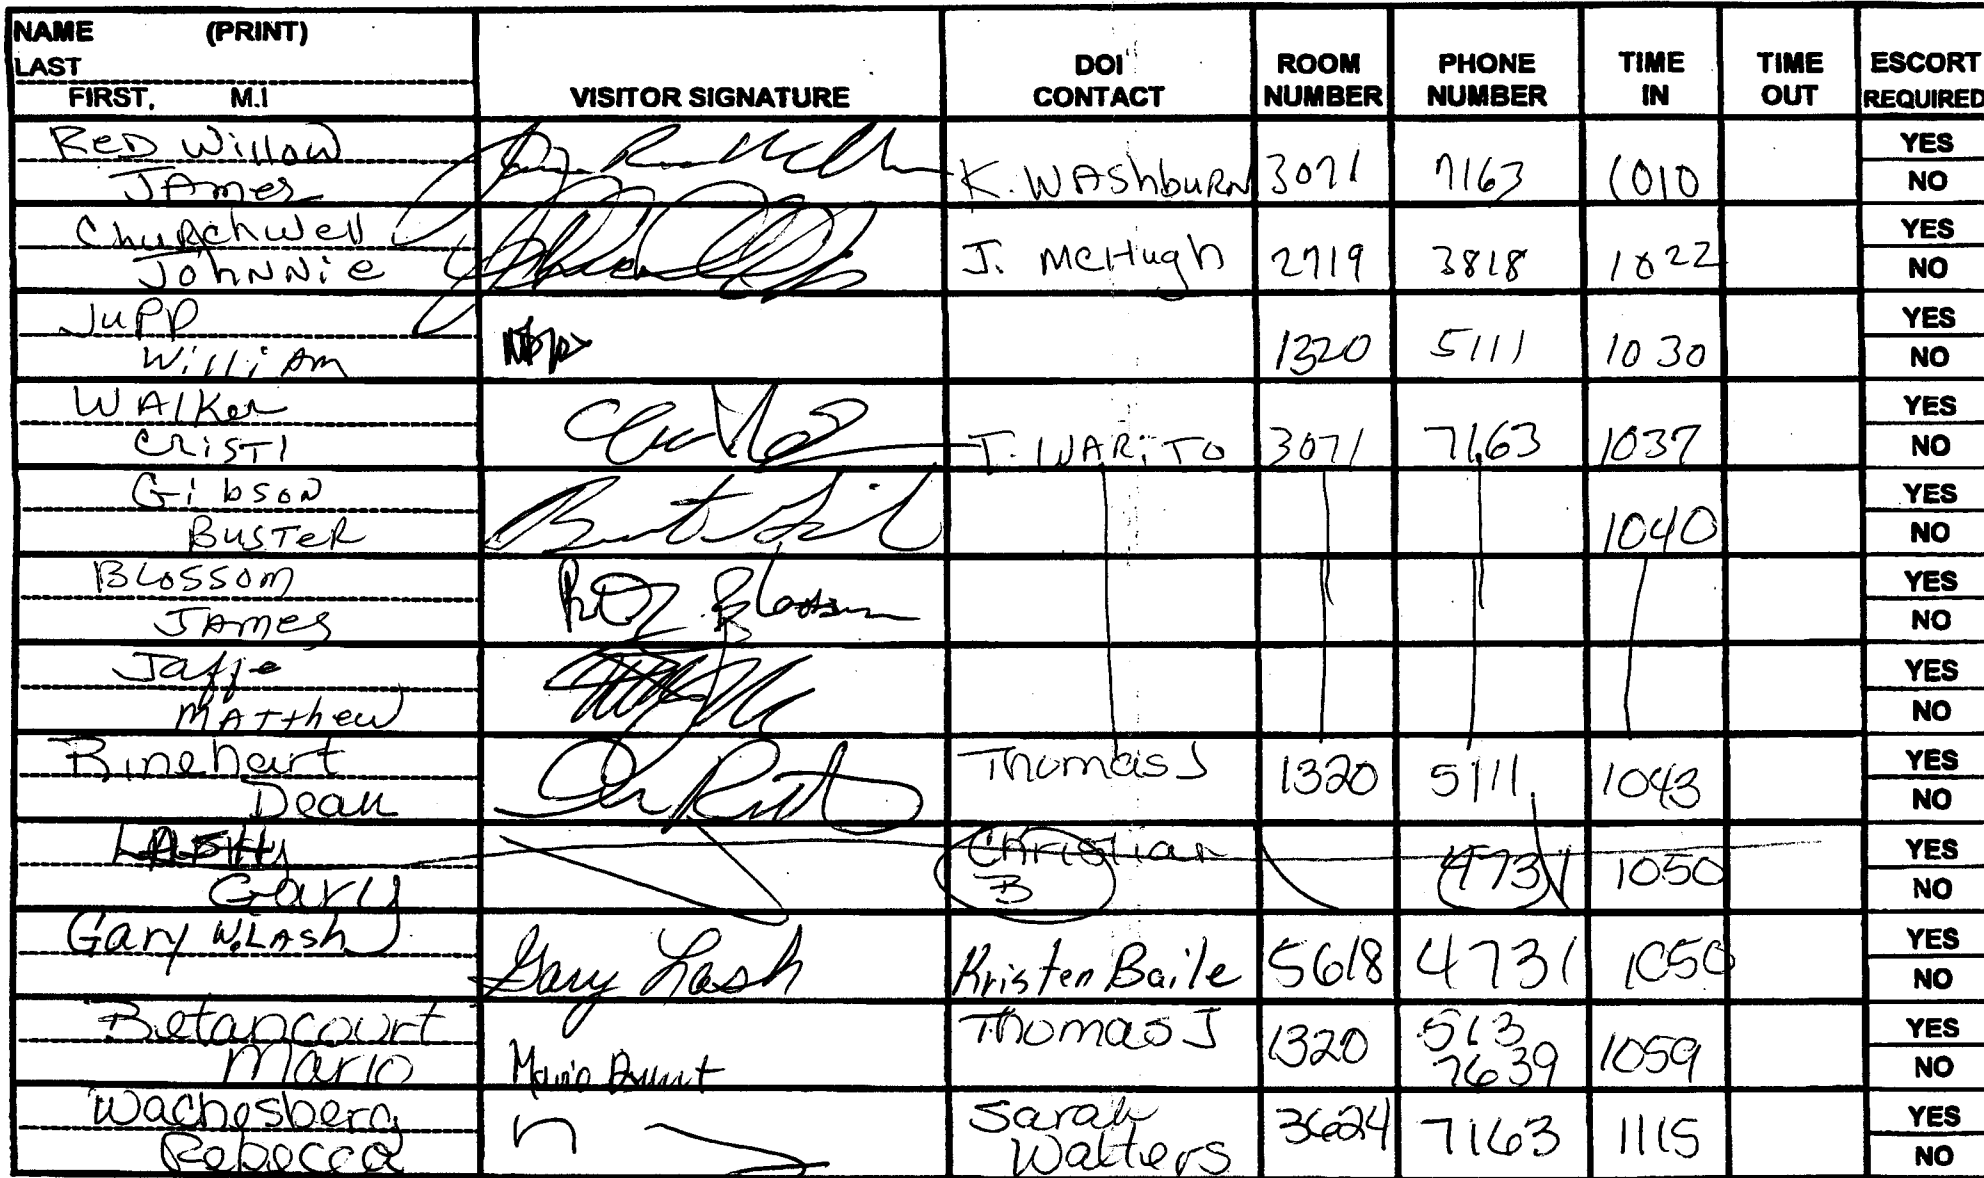 NAME (PRINT)
LAST
FIRST, M.I
VISITOR SIGNATURE
DOI CONTACT
ROOM NUMBER
PHONE NUMBER
TIME IN
TIME OUT
ESCORT REQUIRED
Red Willow
James K. Washburn 3071 7163 1010 YES NO
Churchwell
Johnnie J. McHugh 2719 3818 1022 YES NO
Jupp
William 1320 5111 1030 YES NO
Walker
Cristi T. WARiTO 3071 7163 1037 YES NO
Gibson
Buster 1040 YES NO
Blossom
James Blossom YES NO
Jaffe
Matthew YES NO
Rinehart
Dean Thomas J 1320 5111 1043 YES NO
Gary Christian B 4731 1050 YES NO
Gary W. Lash Gary Lash Kristen Baile 5618 4731 1050 YES NO
Betancourt
Mario Mario Thomas J 1320 513 7639 1059 YES NO
Wachesberg
Rebecca Sarah Walters 3624 7163 1115 YES NO